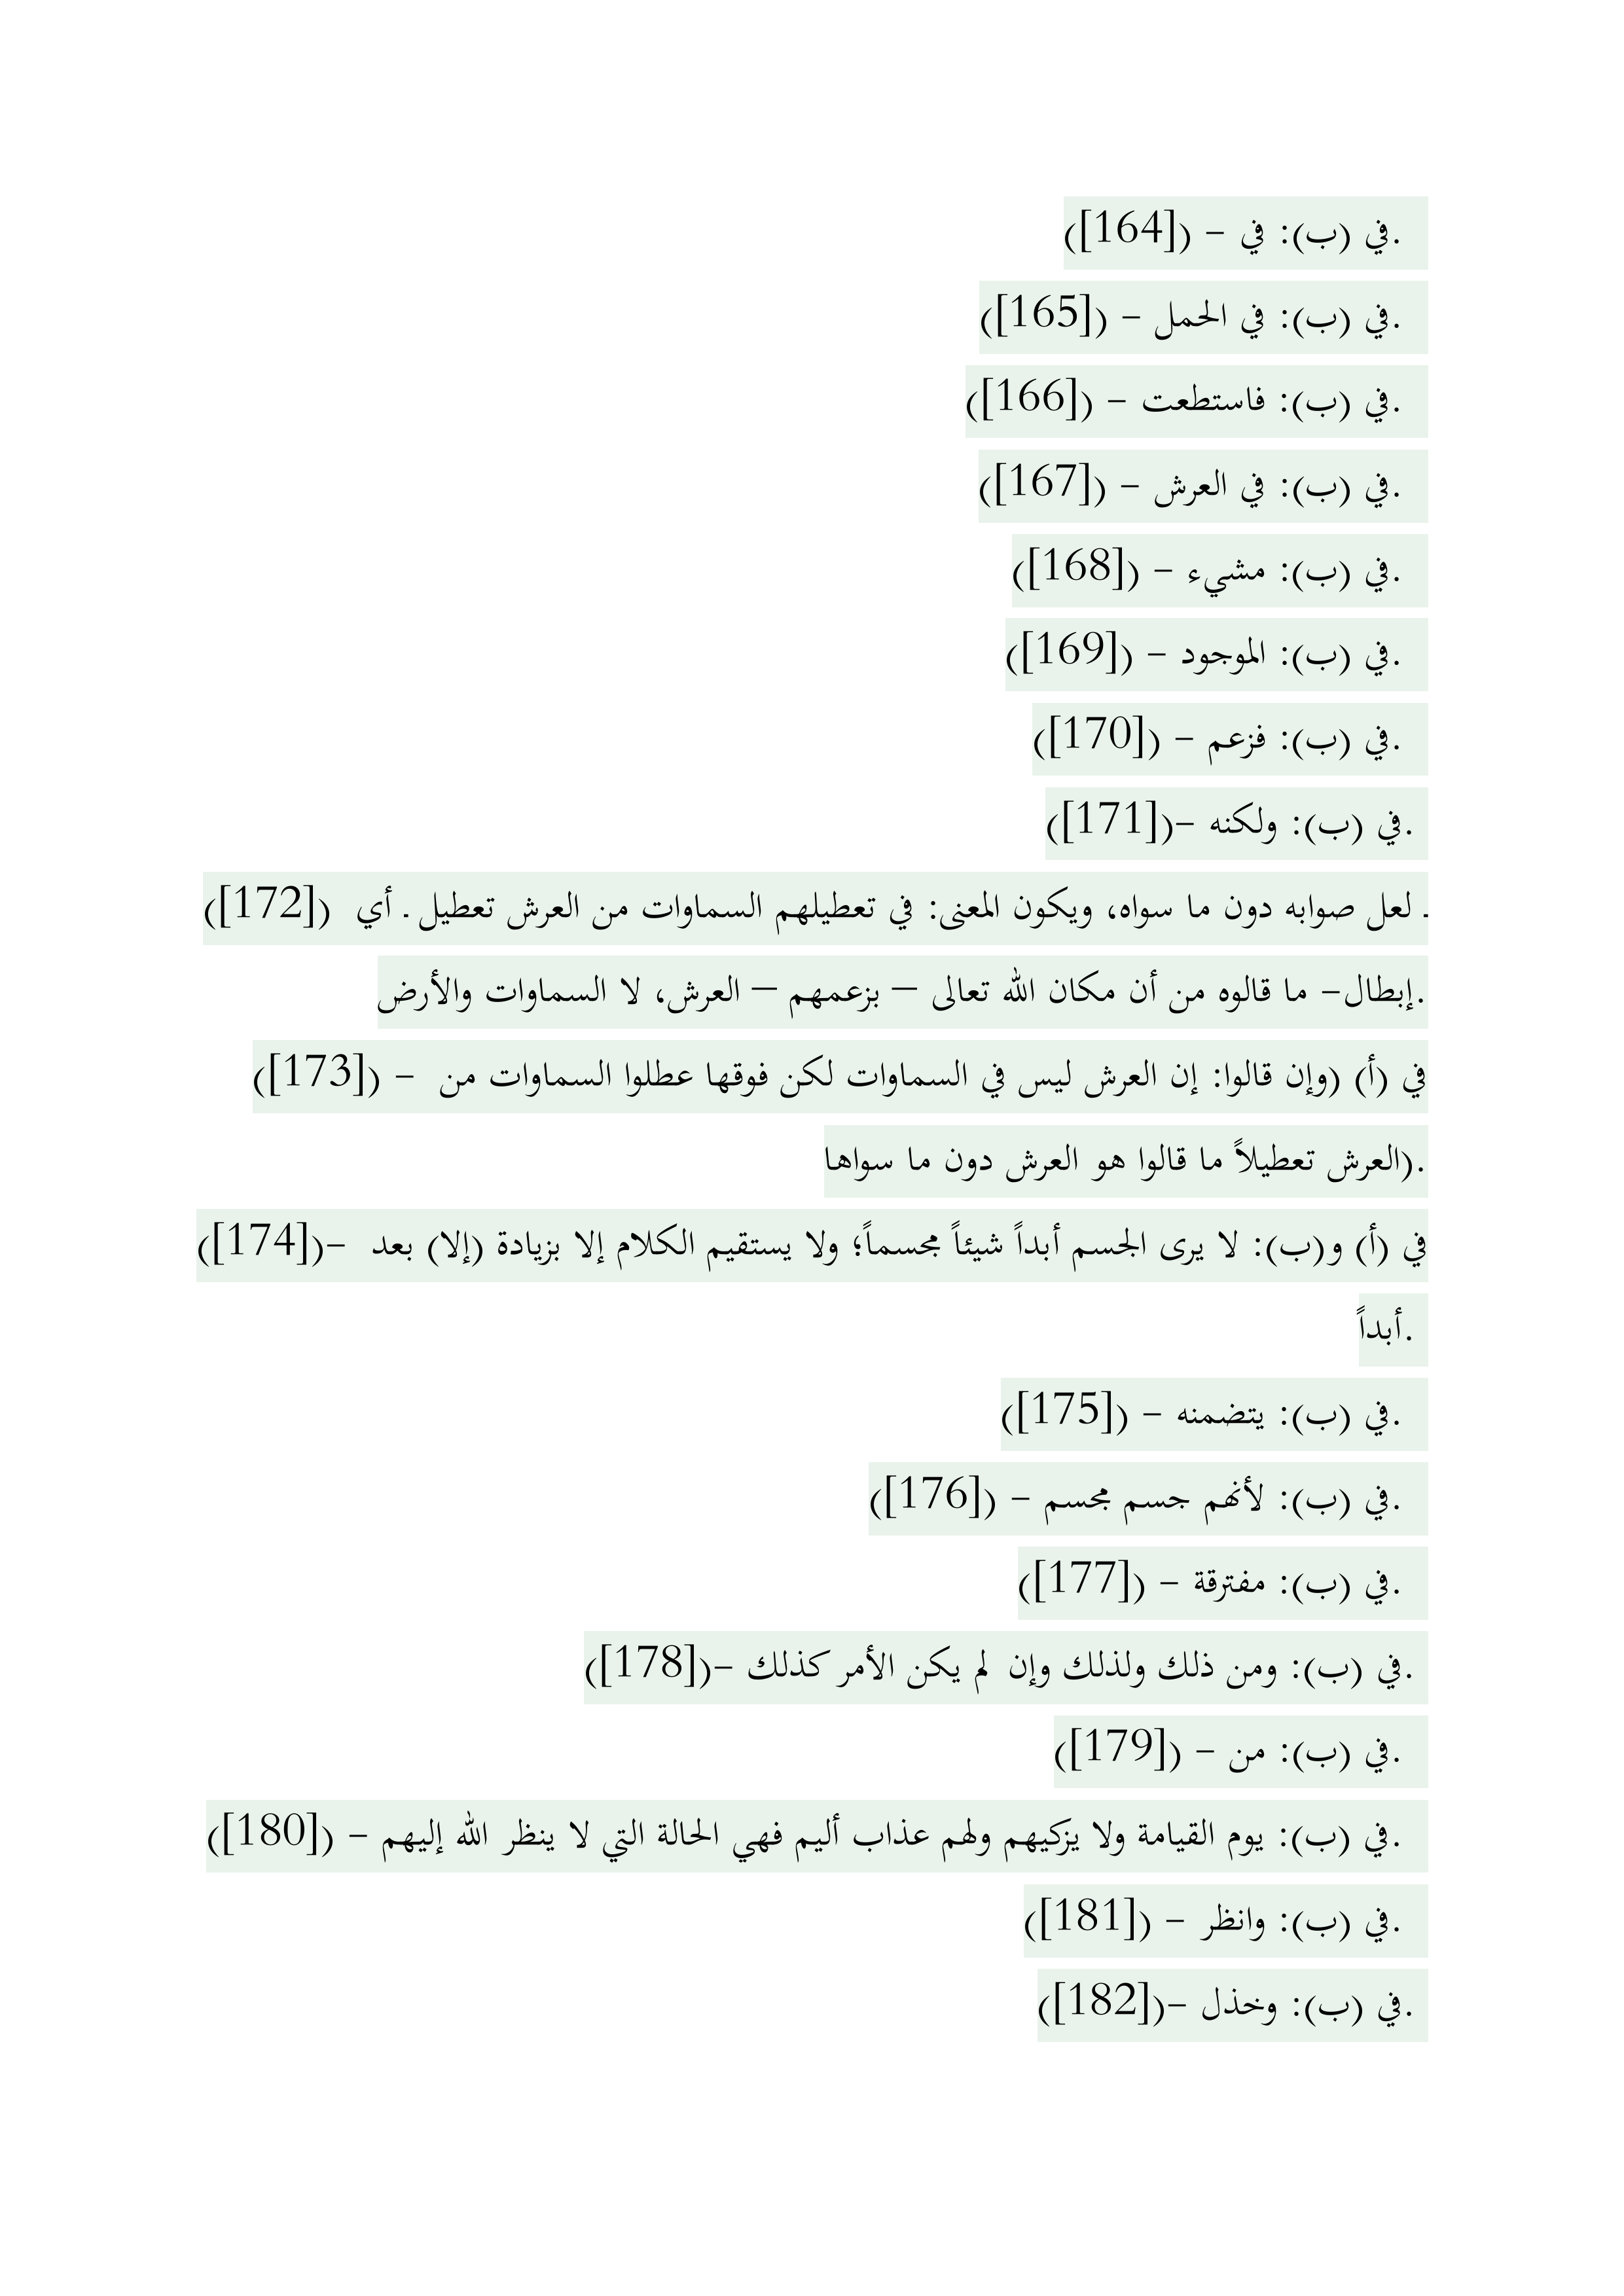 .في (ب): في – ([164])
.في (ب): في الحمل – ([165])
.في (ب): فاستطعت – ([166])
.في (ب): في العرش – ([167])
.في (ب): مشيء – ([168])
.في (ب): الموجود – ([169])
.في (ب): فزعم – ([170])
.في (ب): ولكنه –([171])
. لعل صوابه دون ما سواه، ويكون المعنى: في تعطيلهم السماوات من العرش تعطيل . أي ([172])
.إبطال– ما قالوه من أن مكان الله تعالى – بزعمهم – العرش، لا السماوات والأرض
في (أ) (وإن قالوا: إن العرش ليس في السماوات لكن فوقها عطلوا السماوات من – ([173])
.(العرش تعطيلاً ما قالوا هو العرش دون ما سواها
في (أ) و(ب): لا يرى الجسم أبداً شيئاً مجسماً؛ ولا يستقيم الكلام إلا بزيادة (إلا) بعد –([174])
.أبداً
.في (ب): يتضمنه – ([175])
.في (ب): لأنهم جسم مجسم – ([176])
.في (ب): مفترقة – ([177])
.في (ب): ومن ذلك ولذلك وإن لم يكن الأمر كذلك –([178])
.في (ب): من – ([179])
.في (ب): يوم القيامة ولا يزكيهم ولهم عذاب أليم فهي الحالة التي لا ينظر الله إليهم – ([180])
.في (ب): وانظر – ([181])
.في (ب): وخذل –([182])